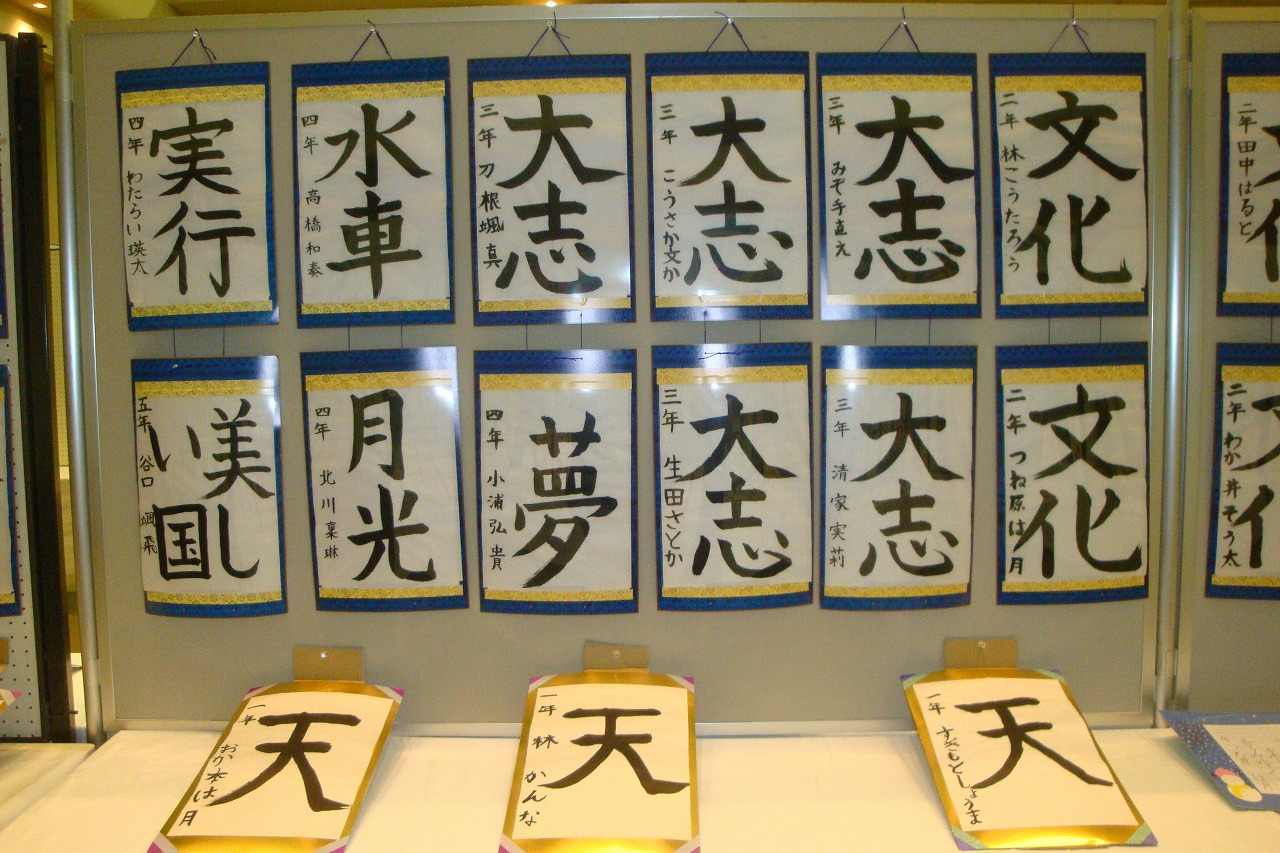 実行
四年 わたらい 瑛太
水車
四年 高橋和奏
大志
三年 刀根颯真
大志
三年 こうさか文か
大志
三年 みぞ手直え
文化
二年 林こうたろう
二年 田中はると
美しい国
五年 谷口 颯飛
月光
四年 北川
夢
四年 小浦弘貴
大志
三年 生田さとか
大志
三年 清家実莉
文化
二年 つね原は月
二年 わか井そう太
天
一年 おか本は月
天
一年 林 かんな
天
一年 すぎもとしょうま